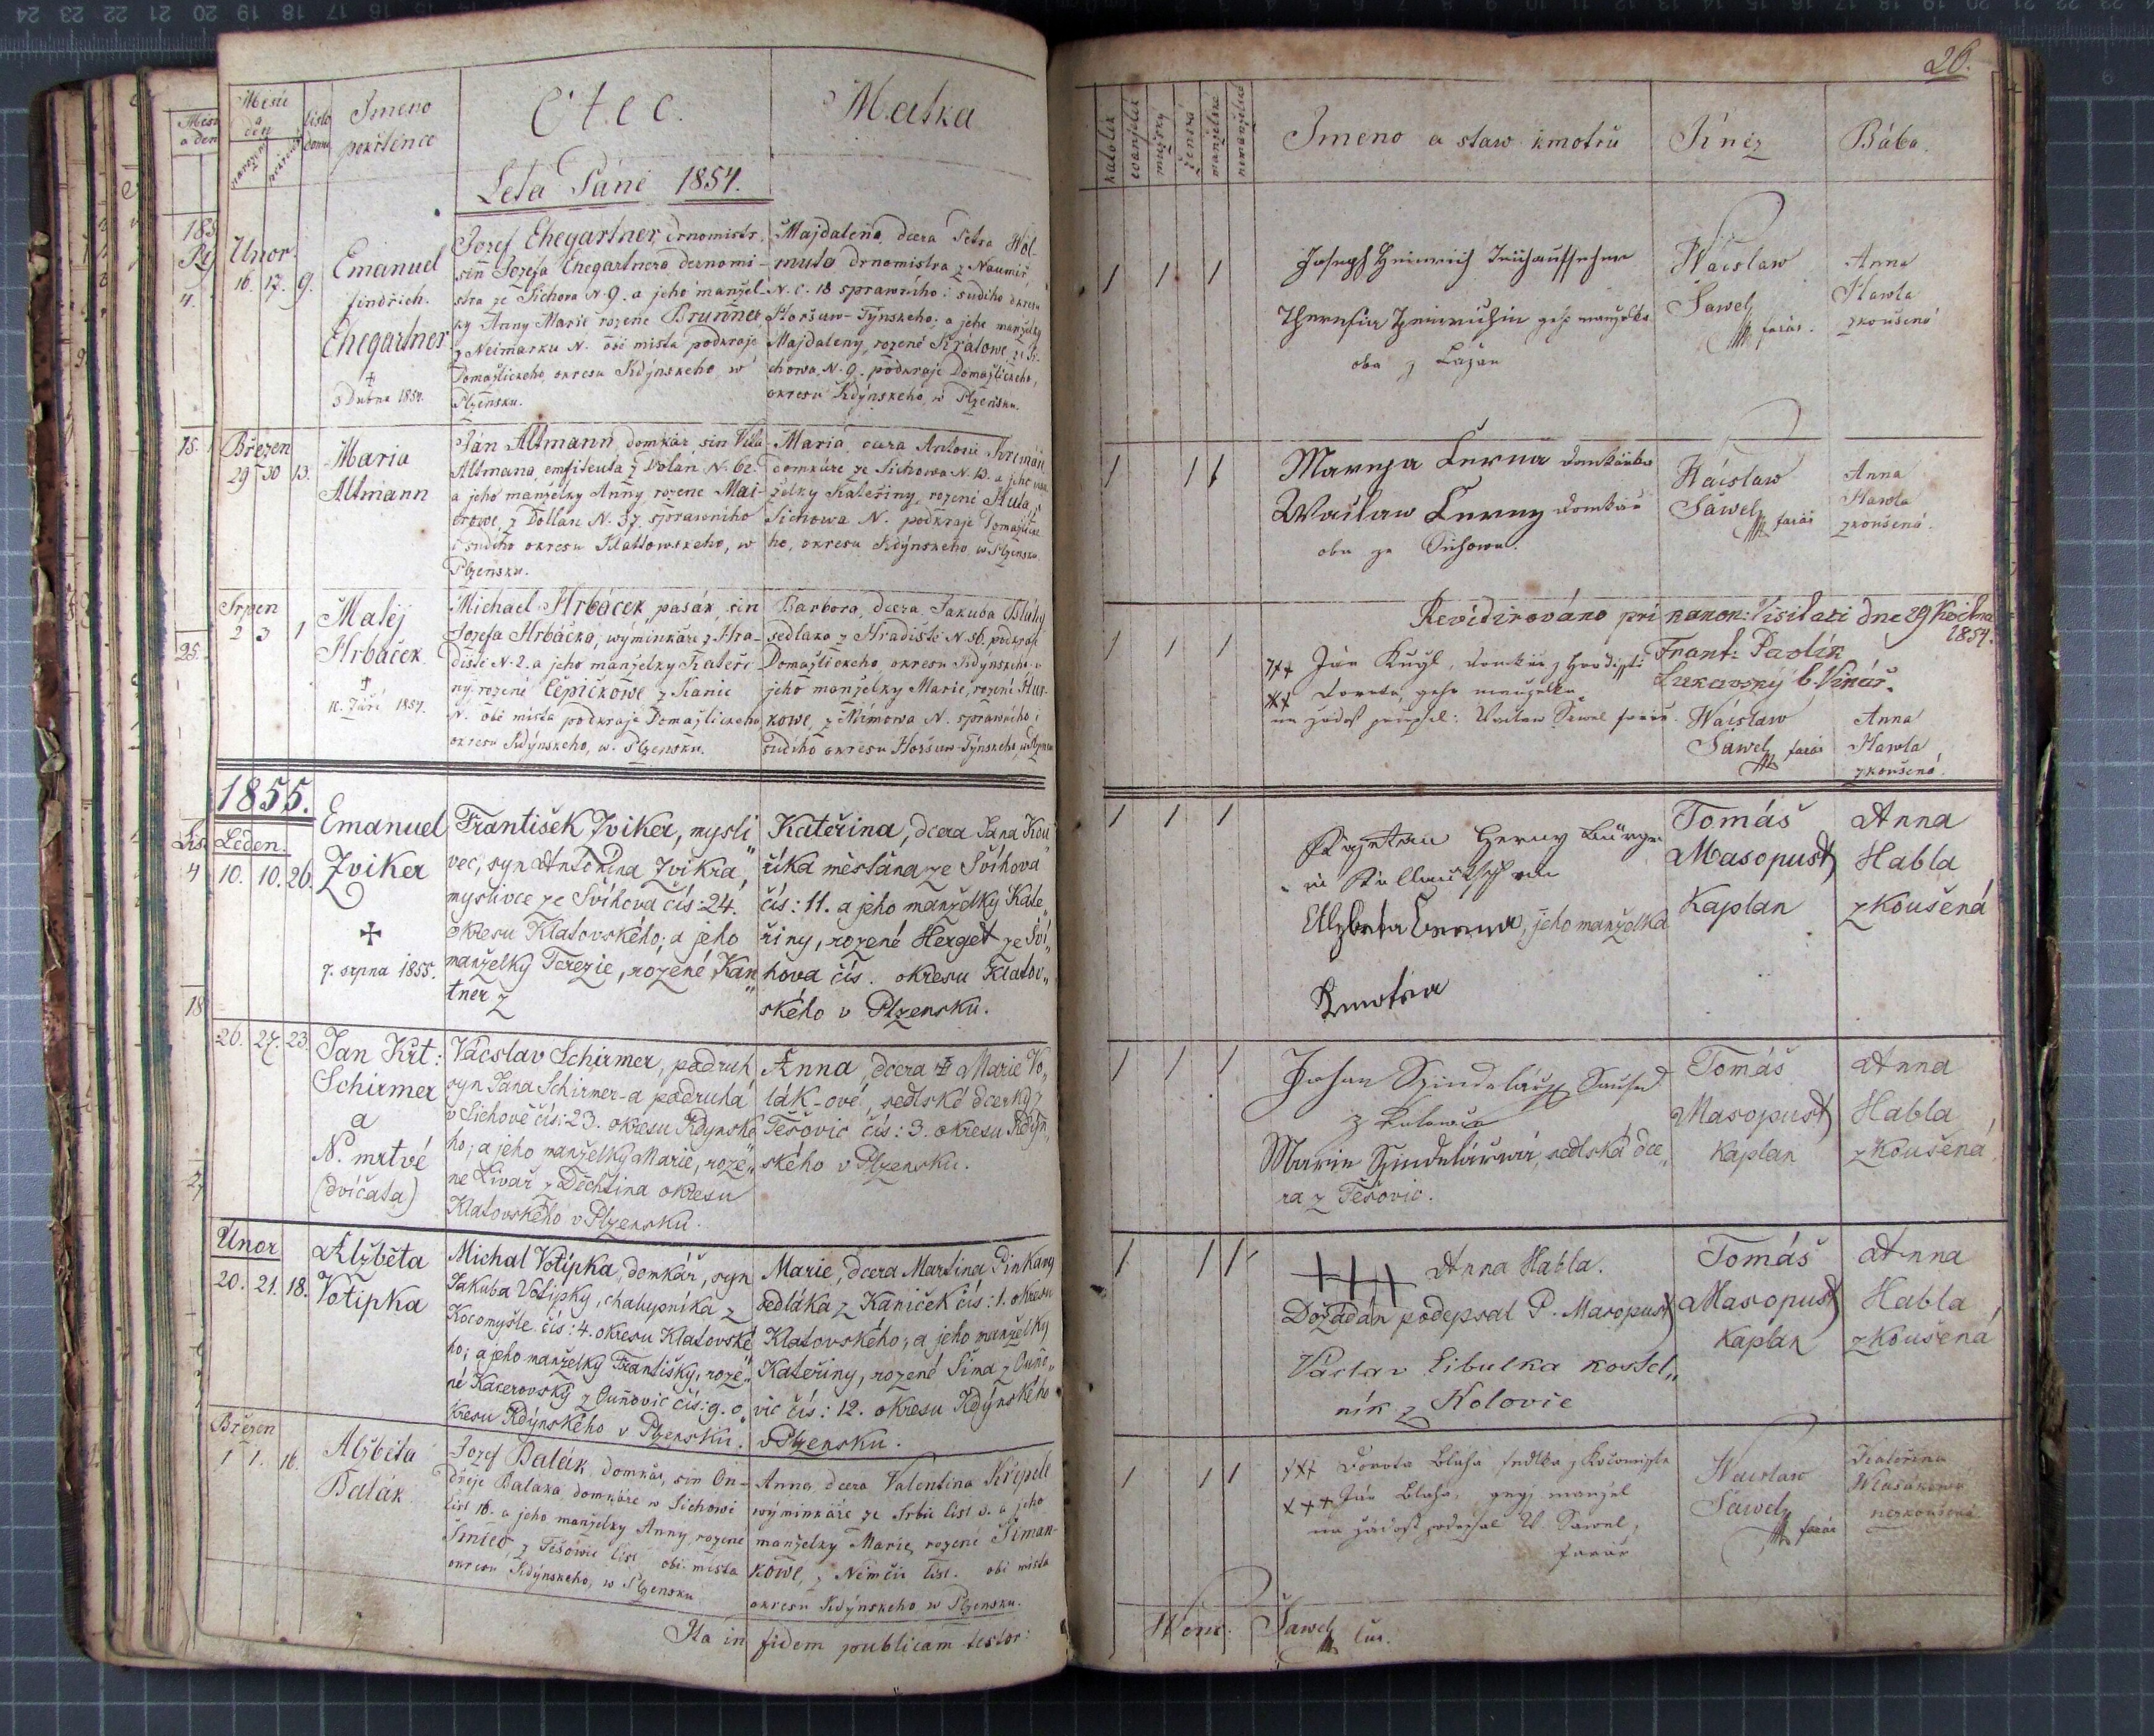 Měsíc a den
narození
číslo domu
Jmeno pokřtěnce
Otec.
Matka
Leta Páně 1854.
Unor
16. 17. 9.
Emanuel
Jindřich.
Ehegartner
+
3 Dubna 1854.
Jozef Ehegartner, drnomistr,
sin Jozefa Ehegartnera drnomi-
stra ze Sichova N. 9. a jeho manžel-
ky Anny Marie rozené Brunner
z Neimarku N. obě místa podkraje
Domažlického, okresu Kdýnskeho, w
Plzeňsku.
Majdalena, dcera Petra Wol-
muta drnomistra z Naumiř,
N. C. 18 sprawního i sudiho okresu
Horšuw-Týnskeho; a jeho manželky
Majdaleny, rozené Králowe, ze Si-
chowa, N. 9. podkraje Domažlického,
okresu Kdýnskeho, w Plzeňsku.
Březen
29 30 13.
Maria
Altmann
Ján Altmann, domkář, sin Víta
Altmana, emfiteuta z Dolan, N. 62.
a jeho manželky Anny rozene Mai-
erowe, z Dollan N. 37. sprawního
i sudího okresu Klattowskeho, w
Plzensku.
Maria, dcera Antonie
domkáře ze Sichowa N. 13. a jeho man-
želky Kateřiny, rozené
Sichowa N. podkraje Domažlické-
ho, okresu Kdýnskeho, w Plzensku.
Srpen
2 3 1
Matěj
Hrbáček
+
Září 1854.
Michael Hrbáček, pasák, sin
Jozefa Hrbáčka, wýminkáře z Hra-
diště N. 2. a jeho manželky Kateři-
ny, rozené Čepičkowe z Kanic
N. obě mista podkraje Domažlickeho
okresu Kdýnskeho, w. Plzensku.
Barbora, dcera Jakuba
sedláka z Hradiště N. 56. podkraje
Domažlickeho, okresu Kdýnskeho a
jeho manželky Marie, rozené
kowe, z N. sprawního i
sudího okresu Horšuw-Týnskeho, w Plzensku
1855.
Leden.
10. 10. 26.
Emanuel
Zviker
+
7. srpna 1855.
František Zviker, mysli„
vec, syn Antonína Zvikra,
myslivce ze Švihova čís: 24.
okresu Klatovského; a jeho
manželky Terezie, rozené Kan„
tner z
Kateřina, dcera Jana Kou„
říka měšťana ze Švihova
čís: 11. a jeho manželky Kate„
řiny, rozené Herget ze Švi„
hova čís. okresu Klatov„
ského v Plzensku.
26. 27. 23.
Jan Křt:
Schirmer
a
N. mrtvé
(dvíčata)
Vácslav Schirmer, podruh
syn Jana Schirmer-a podruha
v Sichově čís: 23. okresu Kdynské„
ho; a jeho manželky Marie, roze„
né Livař z Děchtina okresu
Klatovského v Plzensku.
Anna, dcera Marie Vo„
lák-ové, sedlské dcerky z
Těšovic čís: 3. okresu Kdýn„
ského v Plzensku.
Unor
20. 21. 18.
Alžběta
Votipka
Michal Votipka, domkář, syn
Jakuba Votipky, chalupníka z
Kocomyšle čís: 4. okresu Klatovské„
ho; a jeho manželky Františky, roze„
né Kacerovský z Ouňovic čís: 9. o„
kresu Kdýnského v Plzensku.
Marie, dcera Martina Dinkany
sedláka z Kaniček čís: 1. okresu
Klatovského; a jeho manželky
Kateřiny, rozené Šíma z Ouňo„
vic čís: 12. okresu Kdýnského
v Plzensku.
Březen
1 1. 16.
Alžběta
Balák
Jozef Balák, domkář, sin On-
dřeje Baláka, domkáře w Sichowi
čisl 16. a jeho manželky Anny, rozene
Šmied, z Těšowic čisl. obě místa
okresu Kdýnskeho, w Plzensku
Anna, dcera Valentina Křepelí
wýminkáře ze Srbic čisl 3. a jeho
manželky Marie, rozené Šiman-
kowe, z Němčic čisl. obě místa
okresu Kdýnskeho, w Plzensku.
Ita in fidem publicam testor:
26.
katolík
evanjelík
mužský
ženská
manželské
nemanželské
Jmeno a staw kmotrů
Kněz
Bába.
1 1 1
Joseph Heinrich Teichaufseher
Theresia Heinrichin geho manželka
oba z Lažan
Wácslaw
Sawel
farář.
Anna
Hawla
zkoušená
1 1 1
Maryja Černa domkárka
Wáclaw Černy domkář
oba ze Sichowa.
Wácslaw
Sáwel
farář
Anna
Hawla
zkoušená.
Revidirováno při kanon: Visitaci dne 29 Května
1854.
Frant: Pavlík
b. Vikář.
1 1 1
+++ Ján Kugl, domkář z Hradisti
+++ Dorota, geho manzelka
na žádost podepsal: Václaw Sawel farář.
Wácslaw
Sawel farář
Anna
Hawla
zkoušená.
1 1 1
Kajetan Herny Bürger
in
Elžběta Černa, jeho manželka
Kmotra
Tomáš
Masopust
Kaplan
Anna
Habla
zkoušená
1 1 1
Johan Spindelář Soused
z
Marie Spindelářová, sedlská dce„
ra z Těšovic.
Tomáš
Masopust
Kaplan
Anna
Habla
zkoušená,
1 1 1
+++ Anna Habla.
Dožádán podepsal P. Masopust
Václav Cibulka kostel„
ník z Kolovie
Tomáš
Masopust
Kaplan
Anna
Habla
zkoušená
1 1 1
+++ Dorota Blaha sedlka z Kocomysle
+++ Ján Blaha, gegj manžel
na žádost podepsal W. Sawel,
farář
Wácslaw
Sawel
farář
Kateřina
nezkoušená
Wenc. Šawel
cur.